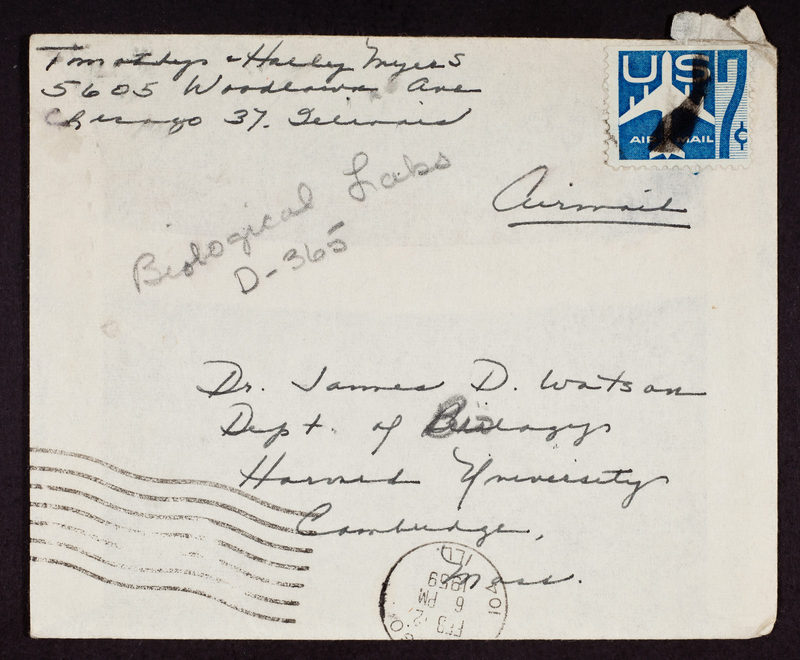 Timothy & Hailey Myers
5605 Woodlawn Ave
Chicago 37. Illinois
US
7¢
AIR MAIL
Airmail
Biological Labs
D-365
Dr. James D. Watson
Dept. of Biology
Harvard University
Cambridge,
Mass.
ILL.
1959
6 PM
FEB 2